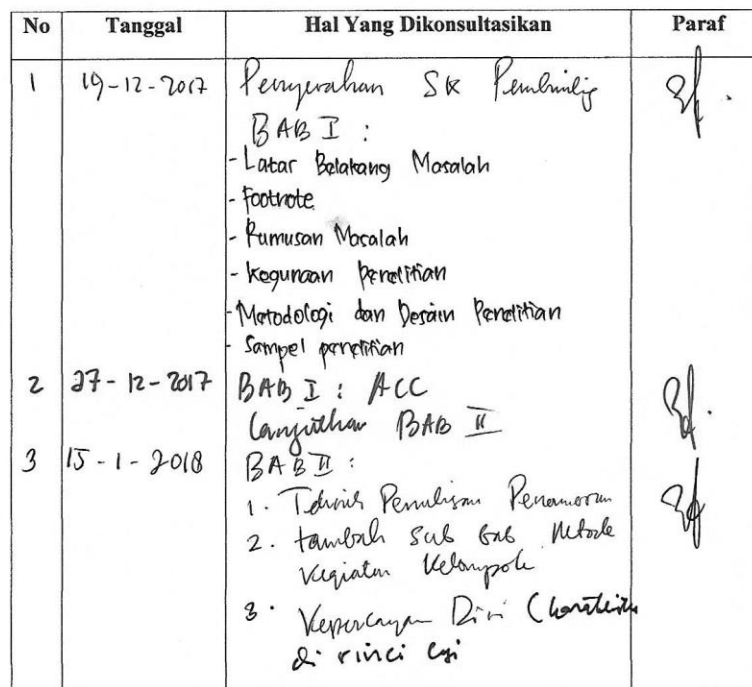 No Tanggal Hal Yang Dikonsultasikan Paraf
1 19-12-2017 Penyerahan SK Pembimbing
BAB I :
- Latar Belakang Masalah
- Footnote
- Rumusan Masalah
- Kegunaan penelitian
- Metodologi dan Desain Penelitian
- Sampel penelitian
2 27-12-2017 BAB I : ACC
Lanjutkan BAB II
3 15-1-2018 BAB II :
1. Teknik Penulisan Penomoran
2. tambah sub bab Metode
Kegiatan Kelompok
3. Kepercayaan Diri (karakteristik
di rinci lagi